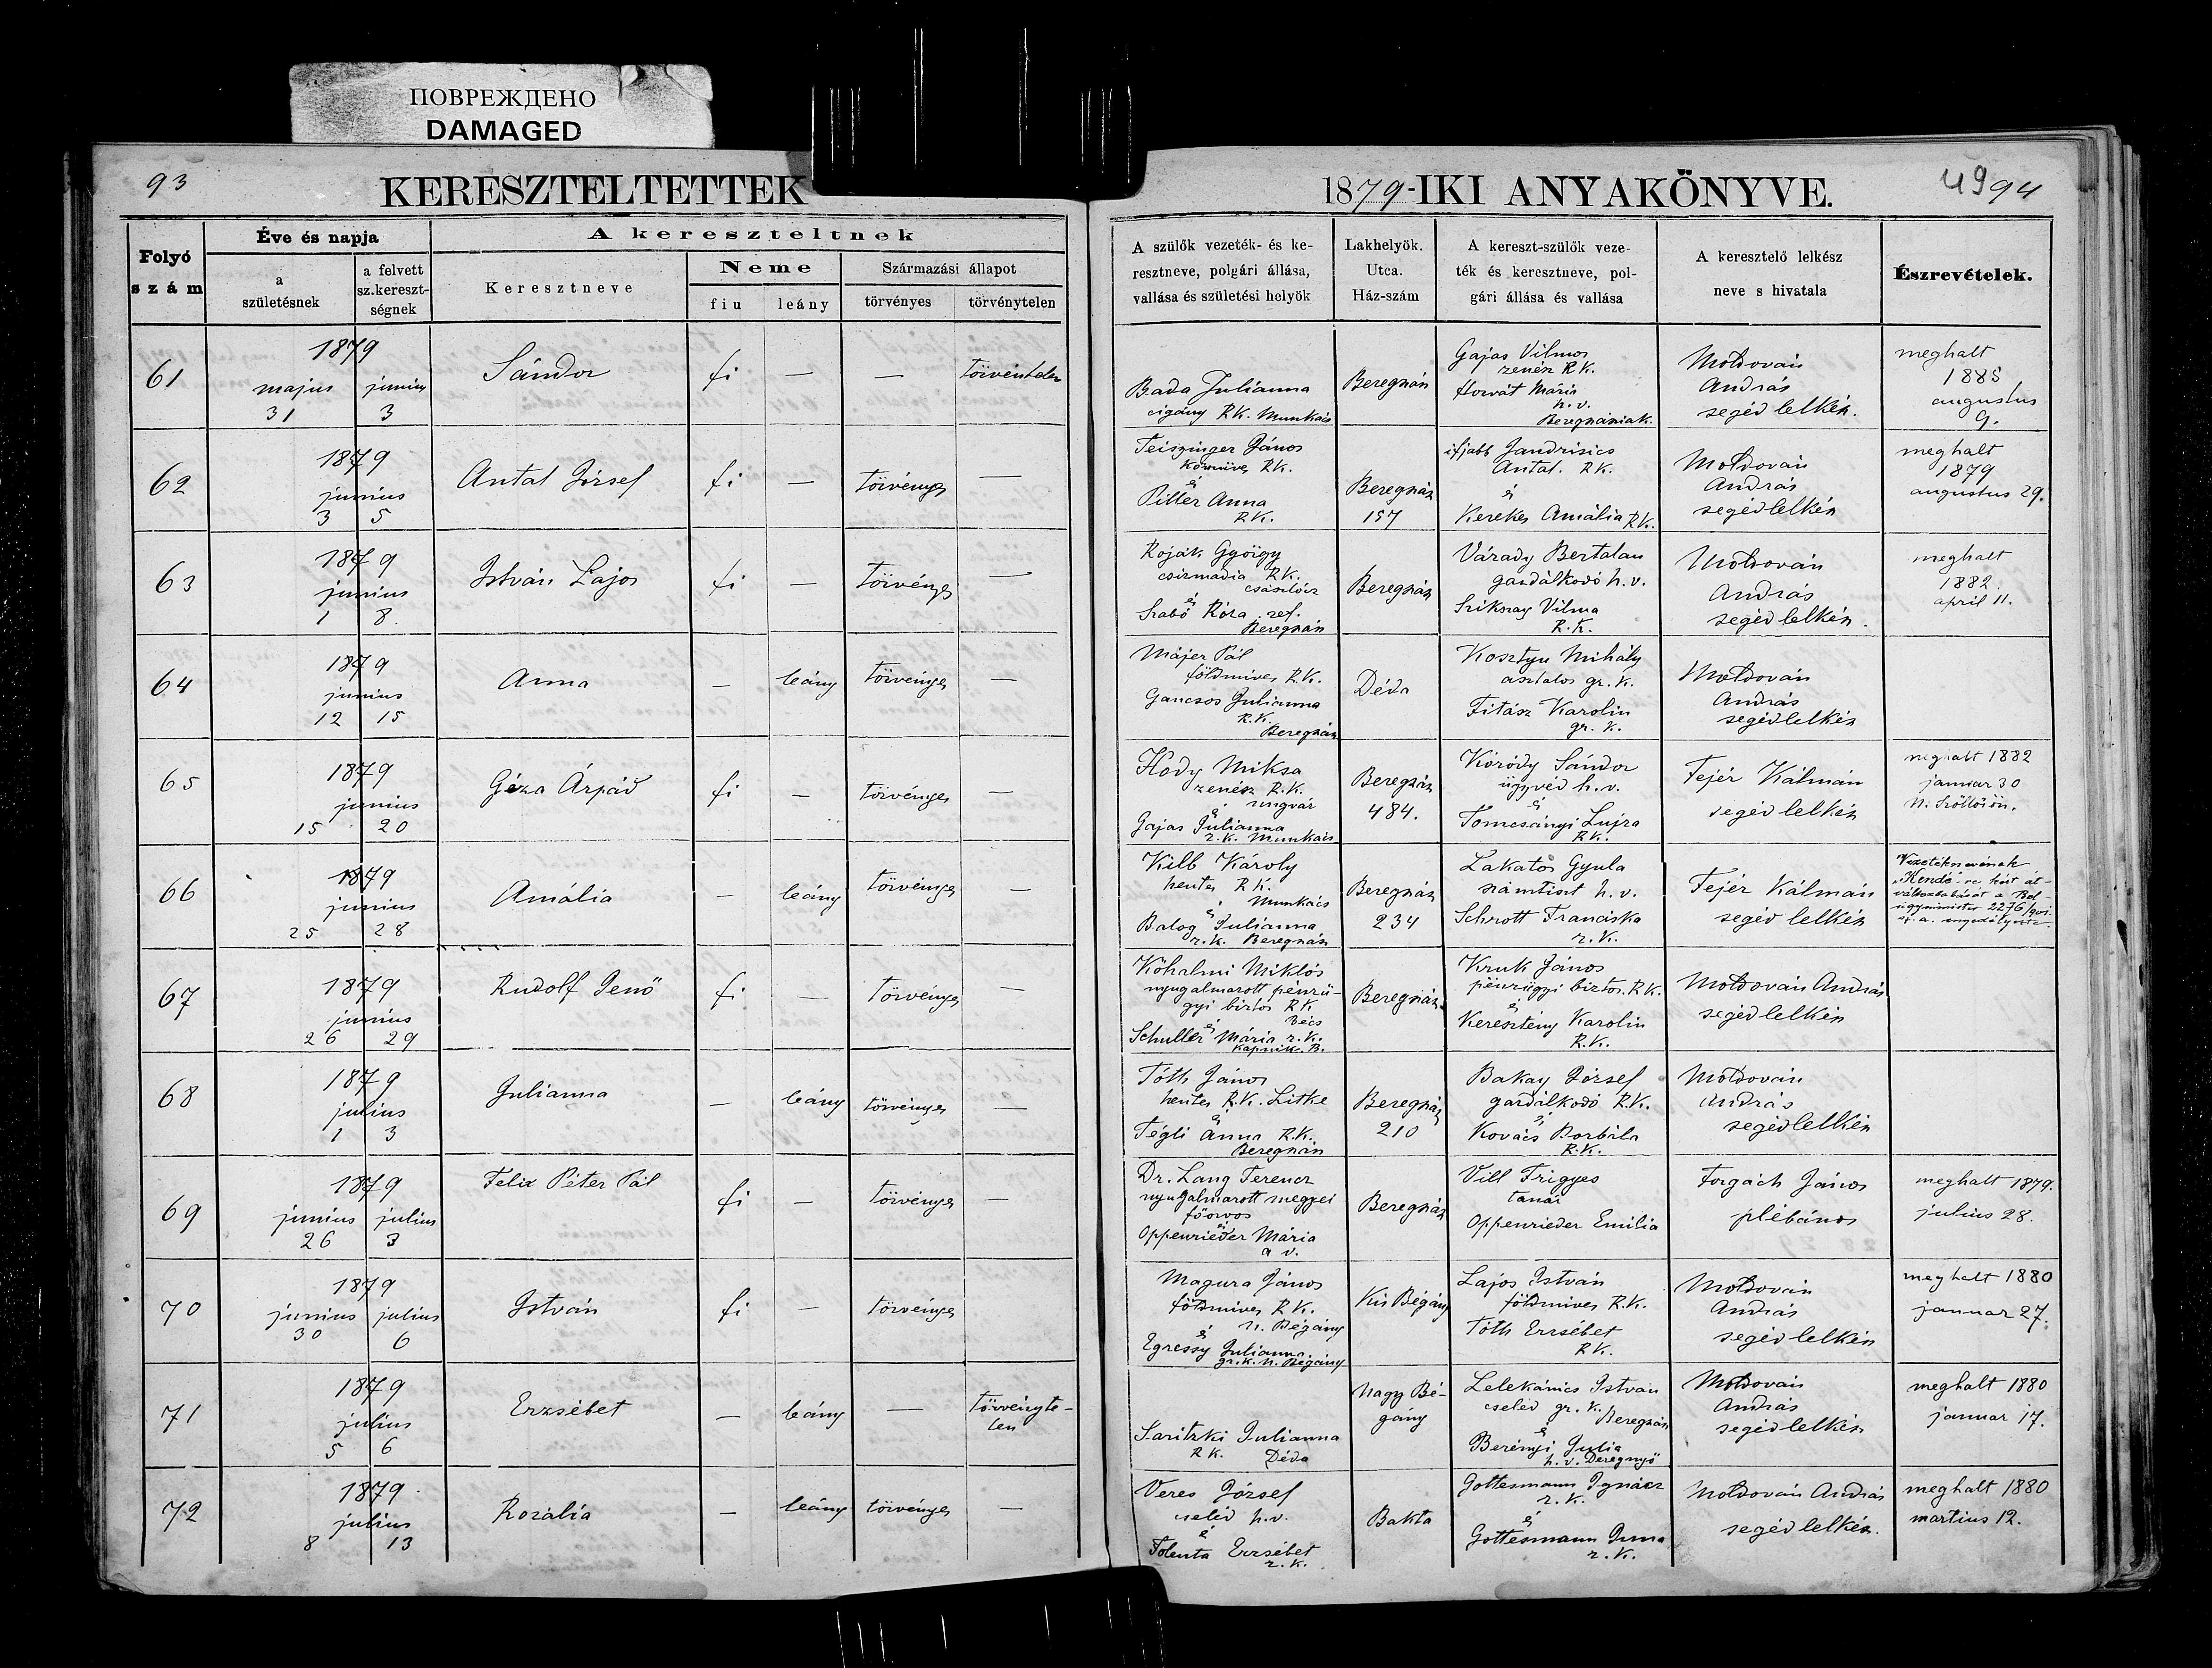 ПОВРЕЖДЕНО
DAMAGED
93
KERESZTELTETTEK
1879-IKI ANYAKÖNYVE.
49 94
Folyó
szám
Éve és napja
a
születésnek
a felvett
sz.kereszt-
ségnek
A kereszteltnek
Keresztneve
Neme
fiu
leány
Származási állapot
törvényes
törvénytelen
A szülők vezeték- és ke-
resztneve, polgári állása,
vallása és születési helyök
Lakhelyök.
Utca.
Ház-szám
A kereszt-szülők veze-
ték és keresztneve, pol-
gári állása és vallása
A keresztelő lelkész
neve s hivatala
Észrevételek.
61
1879
majus
31
junius
3
Sándor
fi
—
—
törvéntelen
Bada Julianna
cigány RK. Munkács
Beregszász
Gajas Vilmos
zenész RK.
Horvát Mária
h.v.
Beregszásziak.
Moldován
András
segéd lelkész.
meghalt
1885
augustus
9.
62
1879
junius
3 5
Antal József
fi
—
törvényes
—
Teiszinger János
kőműves RK.
és
Piller Anna
RK.
Beregszász
157
ifjabb Jandrisics
Antal. RK.
és
Kerekes Amália RK.
Moldován
András
segédlelkész
meghalt
1879
augustus 29.
63
1879
junius
1 8.
István Lajos
fi
—
törvényes
—
Roják György
csizmadia RK.
és
Szabó Róza ref.
Beregszász
Beregszász
Várady Bertalan
gazdálkodó h.v.
Szikszay Vilma
R.K.
Moldován
András
segéd lelkész.
meghalt
1882.
april 11.
64
1879
junius
12 15
Anna
—
leány
törvényes
—
Májer Pál
földmives R.K.
Gancsos Julianna
R.K.
Beregszász
Déda
Kosztyu Mihály
asztalos gr. K.
Fitász Karolin
gr. K.
Moldován
András
segédlelkész
65
1879
junius
15 20
Géza Árpád
fi
—
törvényes
—
Hody Miksa
zenész R.K.
ungvár
és
Gajas Julianna
r.k. Munkács
Beregszász
484.
Köródy Sándor
ügyvéd h.v.
és
Tomcsányi Lujza
RK.
Fejér Kálmán
segéd lelkész
meghalt 1882
januar 30
N. Szőllősön.
66
1879
junius
25 28
Amália
—
leány
törvényes
—
Kilb Károly
hentes RK.
Munkács
és
Balog Julianna
r.k. Beregszász
Beregszász
234
Lakatos Gyula
számtiszt h.v.
Schrott Franciska
r.K.
Fejér Kálmán
segéd lelkész
Vezetéknevének
„Kendé"-re kért át-
változtatását a Bel-
ügyminister 2276/901.
sz. a. engedélyezte.
67
1879
junius
26 29
Rudolf Jenő
fi
—
törvényes
—
Kőhalmi Miklós
nyugalmazott pénzü-
gyi biztos RK
Bécs
és
Schuller Mária r.K.
Kapnik B.
Beregszász.
Kruk János
pénzügyi biztos. RK.
és
Keresztény Karolin
R.K.
Moldován András
segédlelkész
68
1879
julius
1 3
Julianna
—
leány
törvényes
—
Tóth János
hentes R.K. Litke
és
Tégli Anna R.K.
Beregszász
Beregszász
210
Bakay József
gazdálkodó R.K.
és
Kovács Borbála
R.K.
Moldován
András
segédlelkész
69
1879
junius
26
julius
3
Felix Péter Pál
fi
—
törvényes
—
Dr. Lang Ferencz
nyugalmazott megyei
főorvos
és
Oppenrieder Mária
a v.
Beregszász
Vill Frigyes
tanár
Oppenrieder Emilia
Forgách János
plébános
meghalt 1879.
julius 28.
70
1879
junius
30
julius
6
István
fi
—
törvényes
Magura János
földmives R.K.
N. Bégány
és
Egressy Julianna.
gr.k. N. Bégány
Kis Bégány
Lajos István
földmives R.K.
Tóth Erzsébet
RK.
Moldován
András
segéd lelkész
meghalt 1880
januar 27.
71
1879
julius
5 6
Erzsébet
—
leány
—
törvényte-
len
Saritzki Julianna
RK. Déda
Nagy Bé-
gány
Lelekánics István
cseléd gr. K.
Beregszász
és
Berényi Julia
h.v. Deregnyő
Moldován
András
segédlelkész
meghalt 1880
januar 17.
72
1879.
julius
8 13
Rozália
—
leány
törvényes
—
Veres József
cseléd h.v.
é
Tolenta Erzsébet
r.k.
Bakta
Gottesmann Ignácz
r.K.
és
Gottesmann Irma
r.K.
Moldován András
segédlelkész.
meghalt 1880
martius 12.